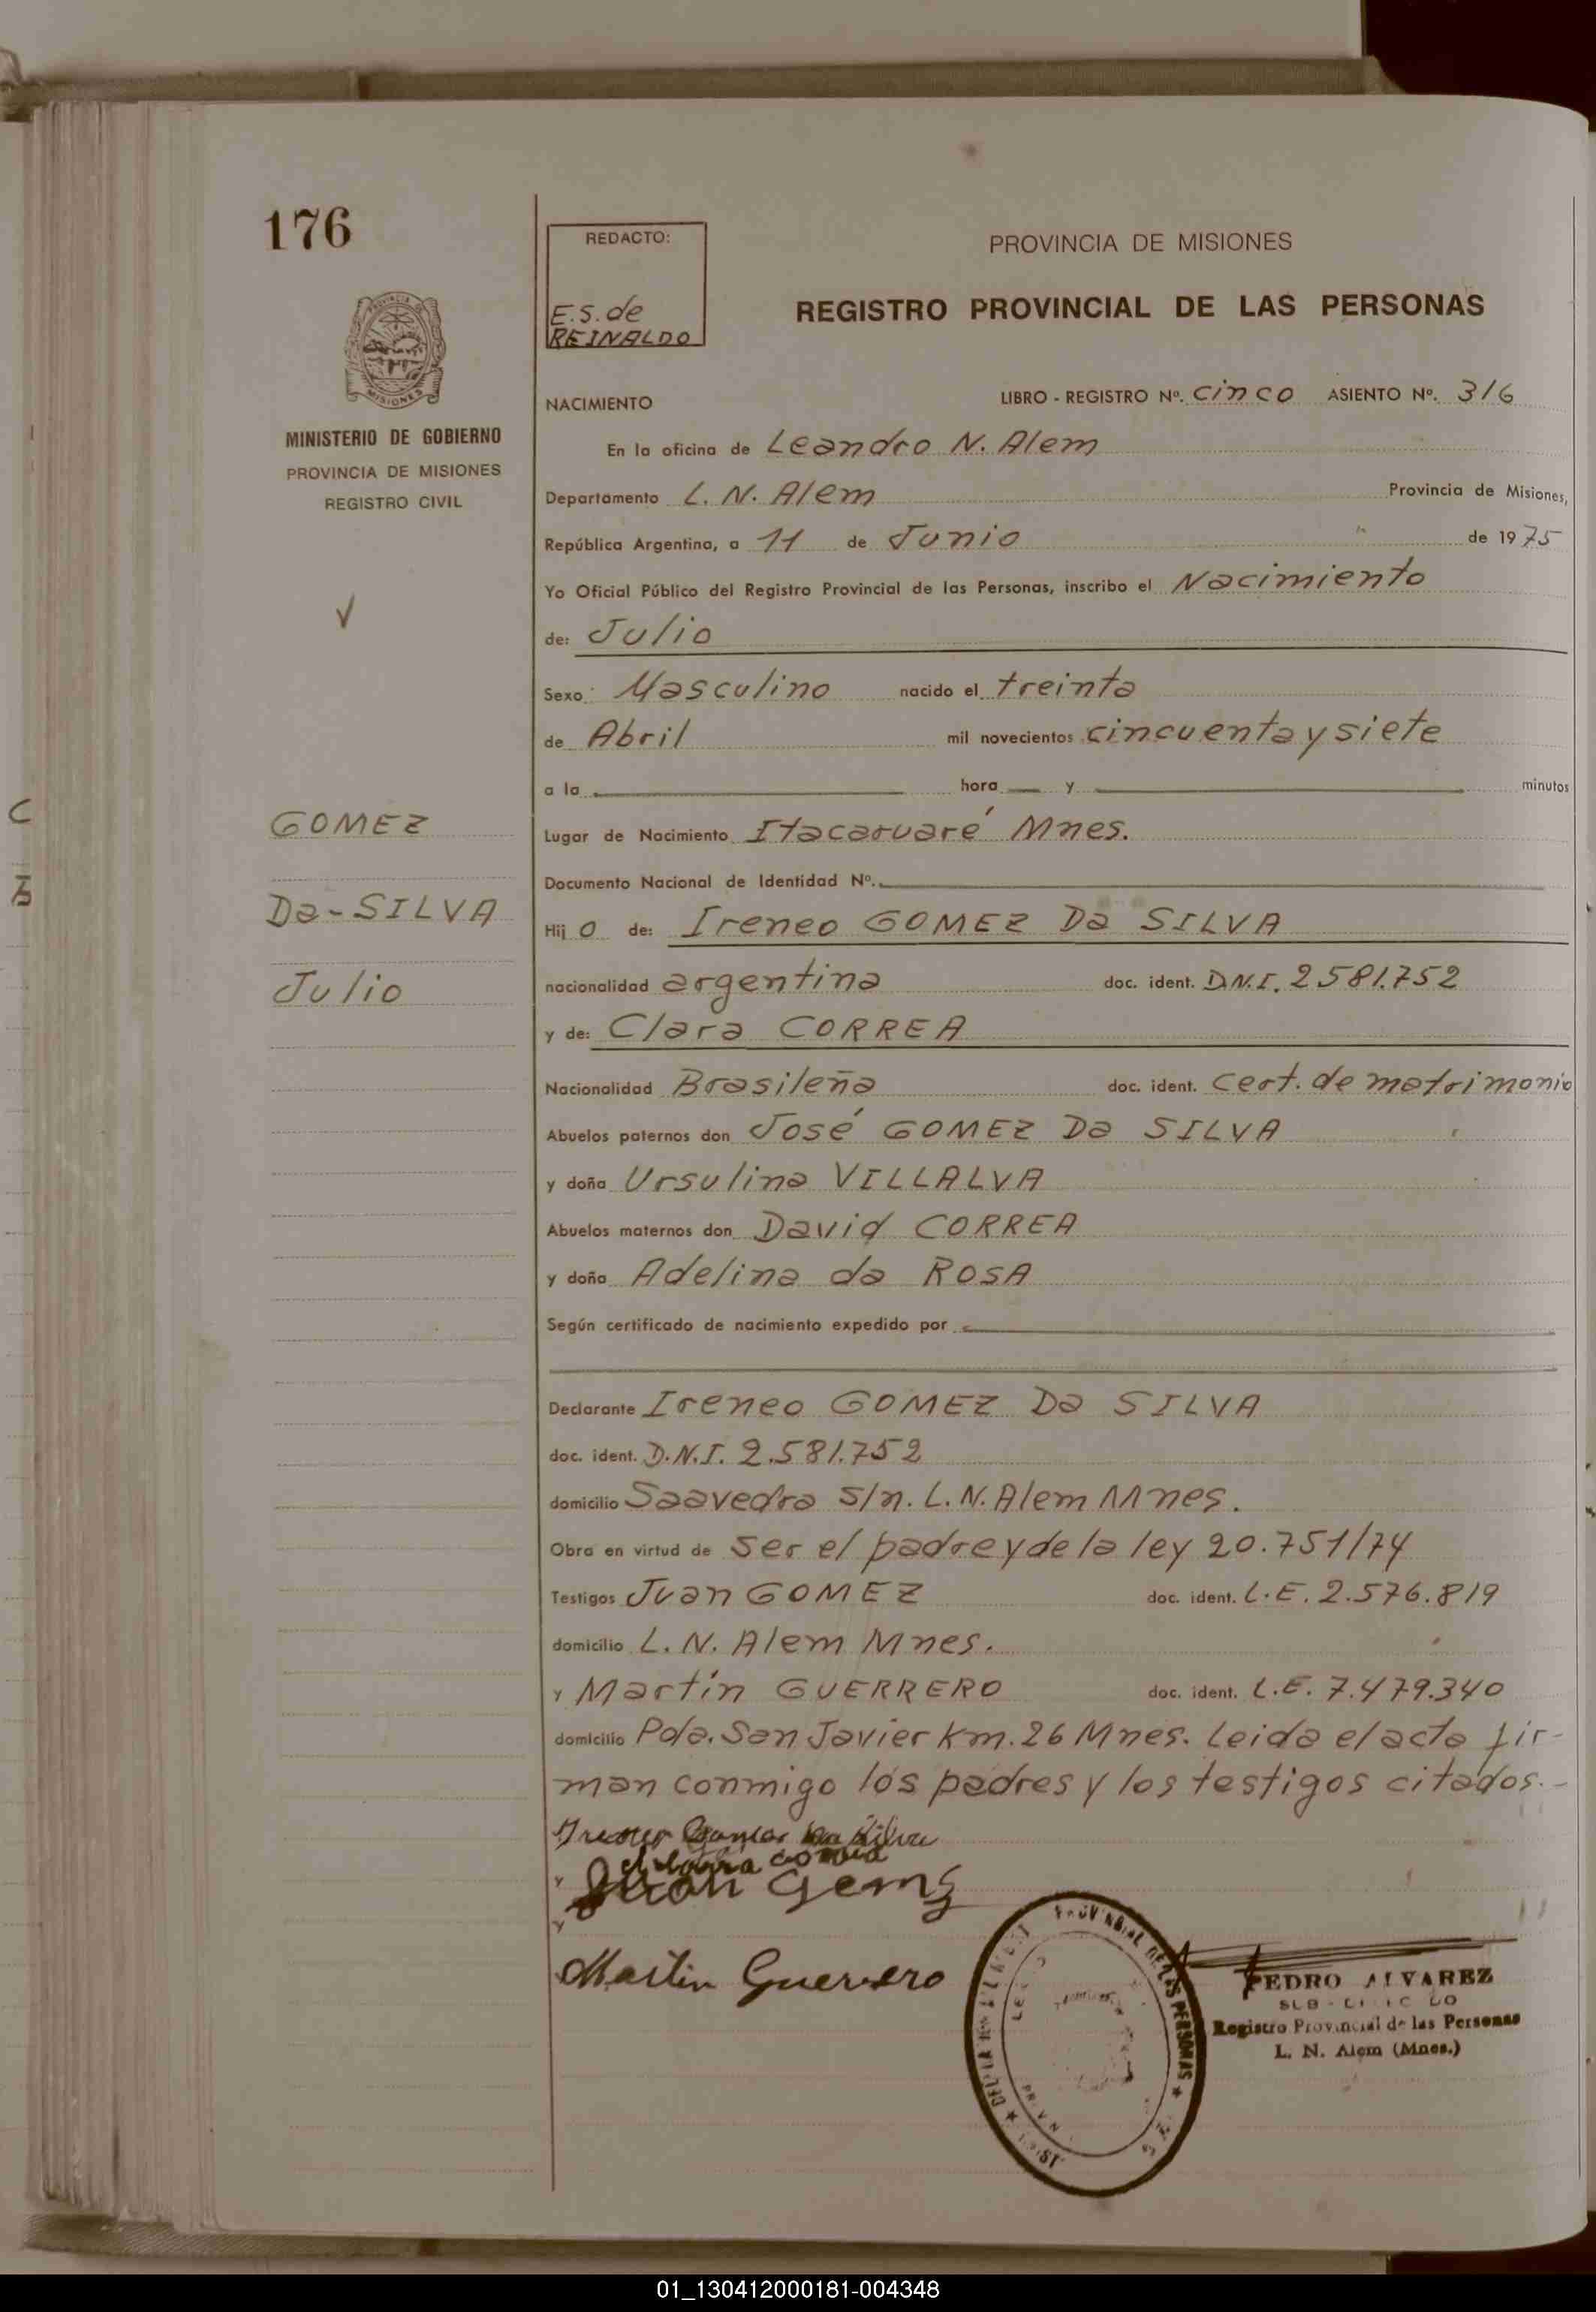 176
REDACTO:
E.S. de
REINALDO
PROVINCIA DE MISIONES
REGISTRO PROVINCIAL DE LAS PERSONAS
MISIONES
MINISTERIO DE GOBIERNO
PROVINCIA DE MISIONES
REGISTRO CIVIL
NACIMIENTO
LIBRO - REGISTRO Nº. cinco ASIENTO Nº. 316
En la oficina de Leandro N. Alem
Departamento L. N. Alem Provincia de Misiones,
República Argentina, a 11 de Junio de 1975
Yo Oficial Público del Registro Provincial de las Personas, inscribo el Nacimiento
de: Julio
Sexo: Masculino nacido el treinta
de Abril mil novecientos cincuenta y siete
a la hora y minutos
GOMEZ
Da-SILVA
Julio
Lugar de Nacimiento Itacaruaré Mnes.
Documento Nacional de Identidad Nº.
Hijo de: Ireneo GOMEZ Da SILVA
nacionalidad argentina doc. ident. D.N.I. 2581.752
y de: Clara CORREA
Nacionalidad Brasileña doc. ident. cert. de matrimonio
Abuelos paternos don José GOMEZ Da SILVA
y doña Ursulina VILLALVA
Abuelos maternos don David CORREA
y doña Adelina da ROSA
Según certificado de nacimiento expedido por
Declarante Ireneo GOMEZ Da SILVA
doc. ident. D.N.I. 2.581.752
domicilio Saavedra s/n. L.N. Alem Mnes.
Obra en virtud de ser el padre y de la ley 20.751/74
Testigos Juan GOMEZ doc. ident. L.E. 2.576.819
domicilio L. N. Alem Mnes.
y Martín GUERRERO doc. ident. L.E. 7.479.340
domicilio Pda. San Javier Km. 26 Mnes. Leida el acta fir-
man conmigo los padres y los testigos citados.-
y
y
Martin Guerrero
PEDRO ALVAREZ
Registro Provincial de las Personas
L. N. Alem (Mnes.)
01_130412000181-004348